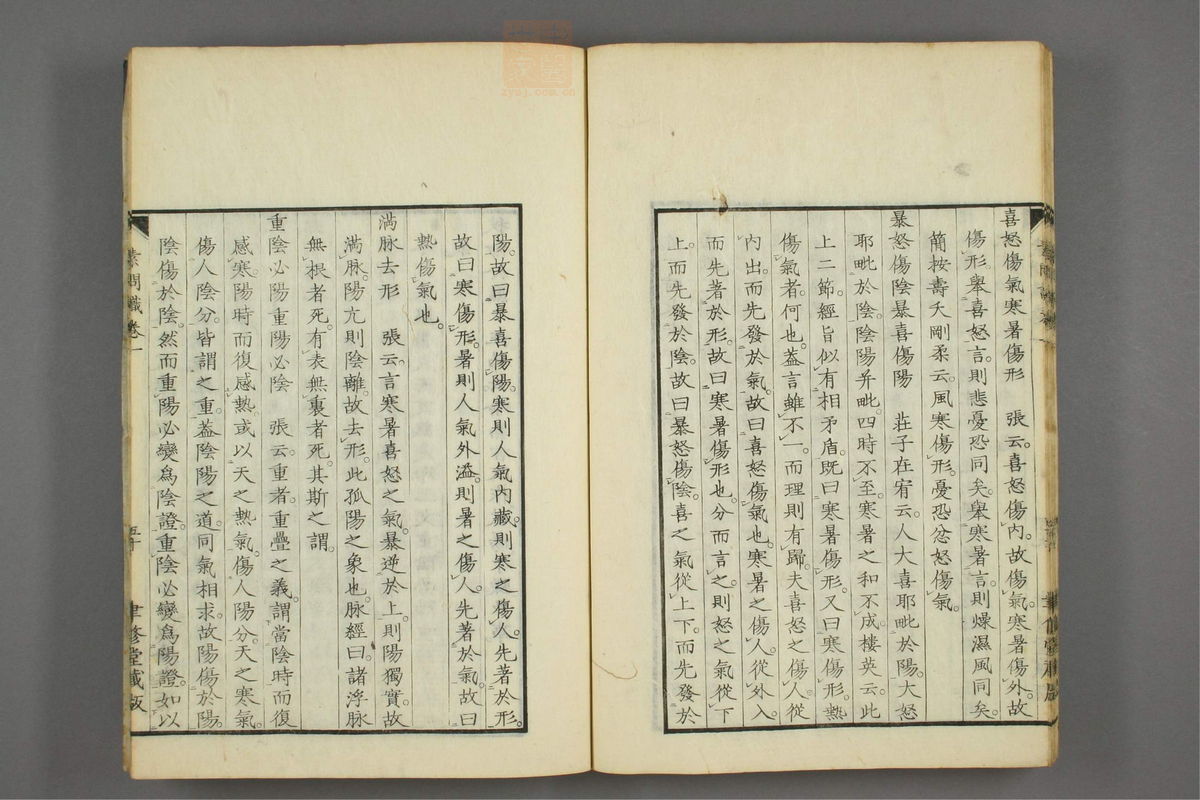 喜怒傷氣寒暑傷形　張云。喜怒傷內。故傷氣。寒暑傷外。故
傷形。舉喜怒言。則悲憂恐同矣。舉寒暑言。則燥濕風同矣。
簡按壽夭剛柔云。風寒傷形。憂恐忿怒傷氣。
暴怒傷陰暴喜傷陽　莊子在宥云。人大喜耶毗於陽。大怒
耶毗於陰。陰陽并毗。四時不至。寒暑之和不成。樓英云。此
上二節。經旨似有相矛盾。旣曰寒暑傷形。又曰寒傷形。熱
傷氣者。何也。葢言雖不一。而理則有歸。夫喜怒之傷人。從
內出。而先發於氣。故曰喜怒傷氣也。寒暑之傷人。從外入。
而先著於形。故曰寒暑傷形也。分而言之。則怒之氣從下
上。而先發於陰。故曰暴怒傷陰。喜之氣從上下。而先發於
陽。故曰暴喜傷陽。寒則人氣內藏。則寒之傷人。先著於形。
故曰寒傷形。暑則人氣外溢。則暑之傷人。先著於氣。故曰
熱傷氣也。
滿脉去形　張云。言寒暑喜怒之氣。暴逆於上。則陽獨實。故
滿脉。陽亢則陰離。故去形。此孤陽之象也。脉經曰。諸浮脉
無根者死。有表無裏者死。其斯之謂。
重陰必陽重陽必陰　張云。重者。重疊之義。謂當陰時而復
感寒。陽時而復感熱。或以天之熱氣。傷人陽分。天之寒氣。
傷人陰分。皆謂之重。葢陰陽之道。同氣相求。故陽傷於陽。
陰傷於陰。然而重陽必變爲陰證。重陰必變爲陽證。如以
素問識卷一
五十
聿修堂藏版
zysj.com.cn